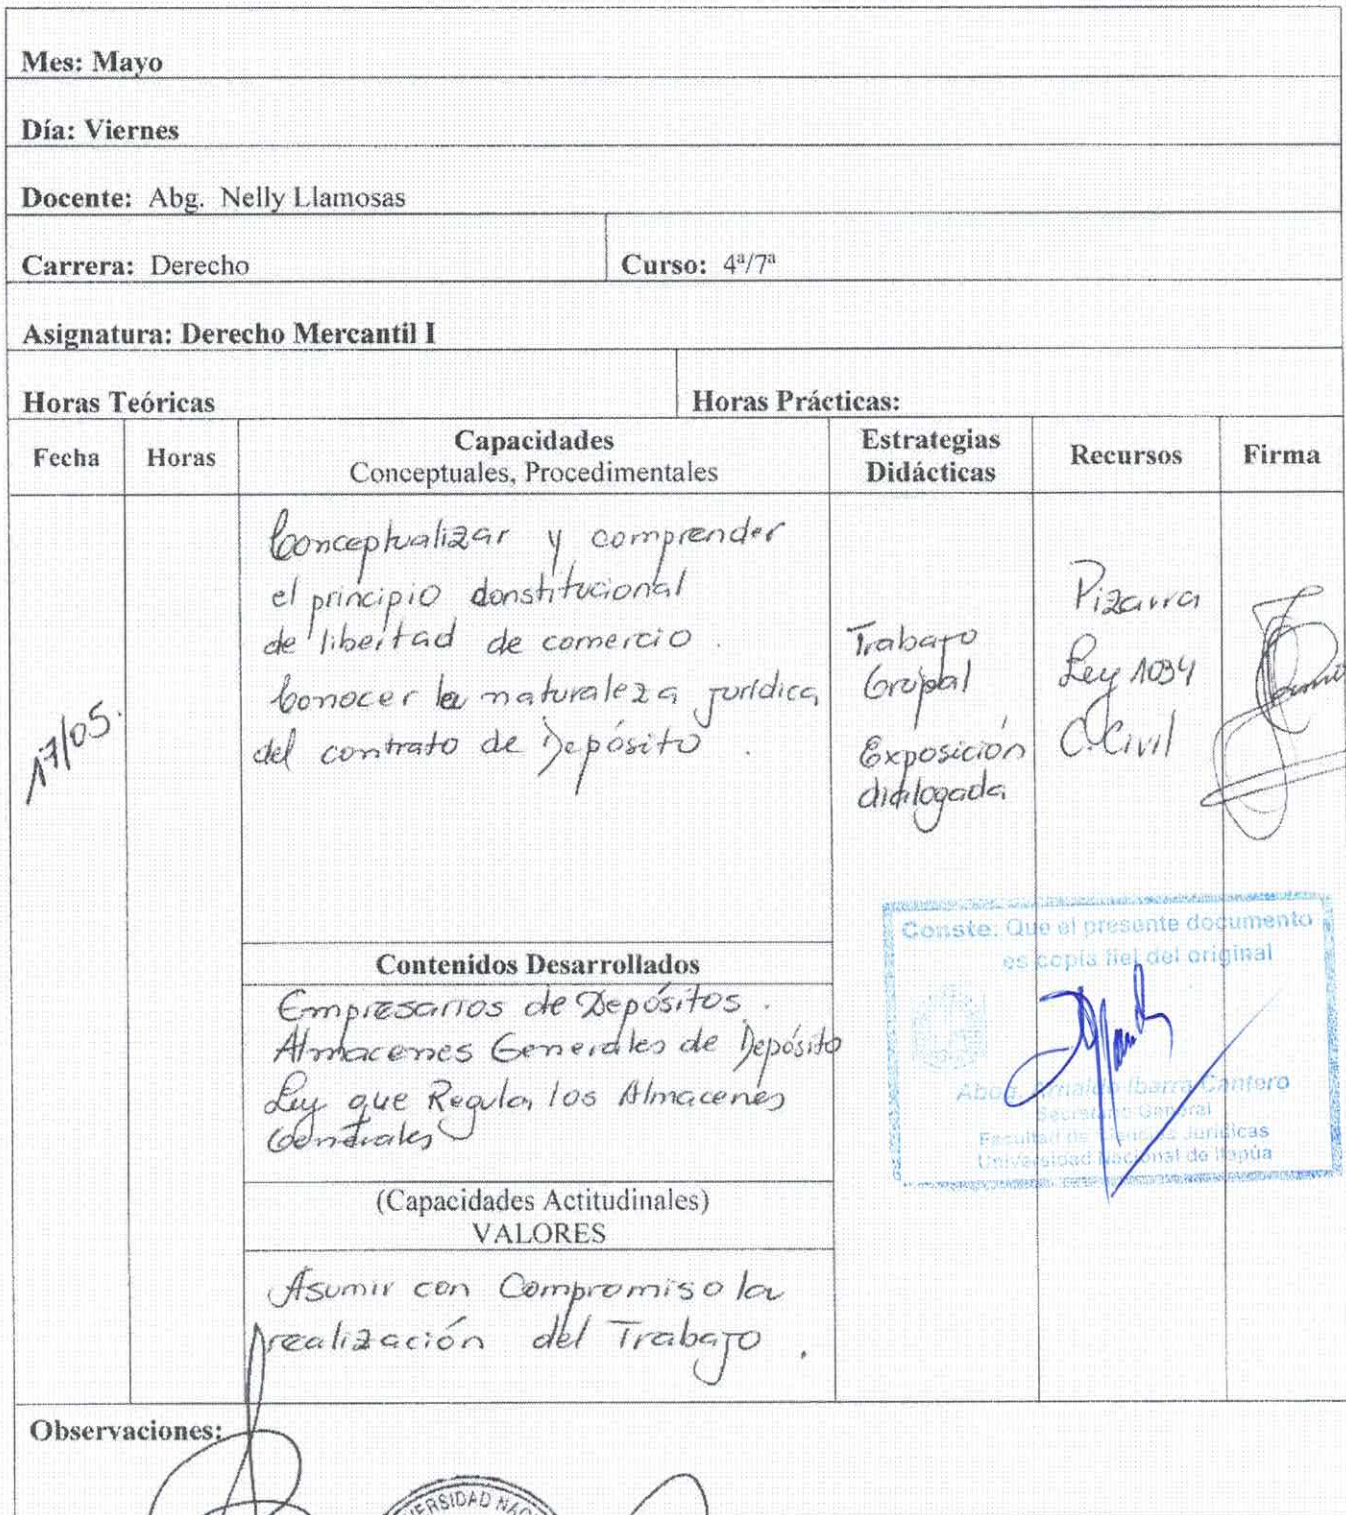 Mes: Mayo
Día: Viernes
Docente: Abg. Nelly Llamosas
Carrera: Derecho
Curso: 4ª/7ª
Asignatura: Derecho Mercantil I
Horas Teóricas
Horas Prácticas:
Fecha
Horas
Capacidades
Conceptuales, Procedimentales
Estrategias
Didácticas
Recursos
Firma
17/05.
Conceptualizar y comprender
el principio constitucional
de libertad de comercio.
Conocer la naturaleza jurídica
del contrato de Depósito.
Trabajo
Grupal
Exposición
dialogada
Pizarra
Ley 1034
C. Civil
Contenidos Desarrollados
Empresarios de Depósitos.
Almacenes Generales de Depósito
Ley que Regula los Almacenes
Generales
(Capacidades Actitudinales)
VALORES
Asumir con Compromiso la
realización del Trabajo.
Conste: Que el presente documento
es copia fiel del original
Abog. Arnaldo Ibarra Cantero
Secretario General
Facultad de Ciencias Jurídicas
Universidad Nacional de Itapúa
Observaciones: